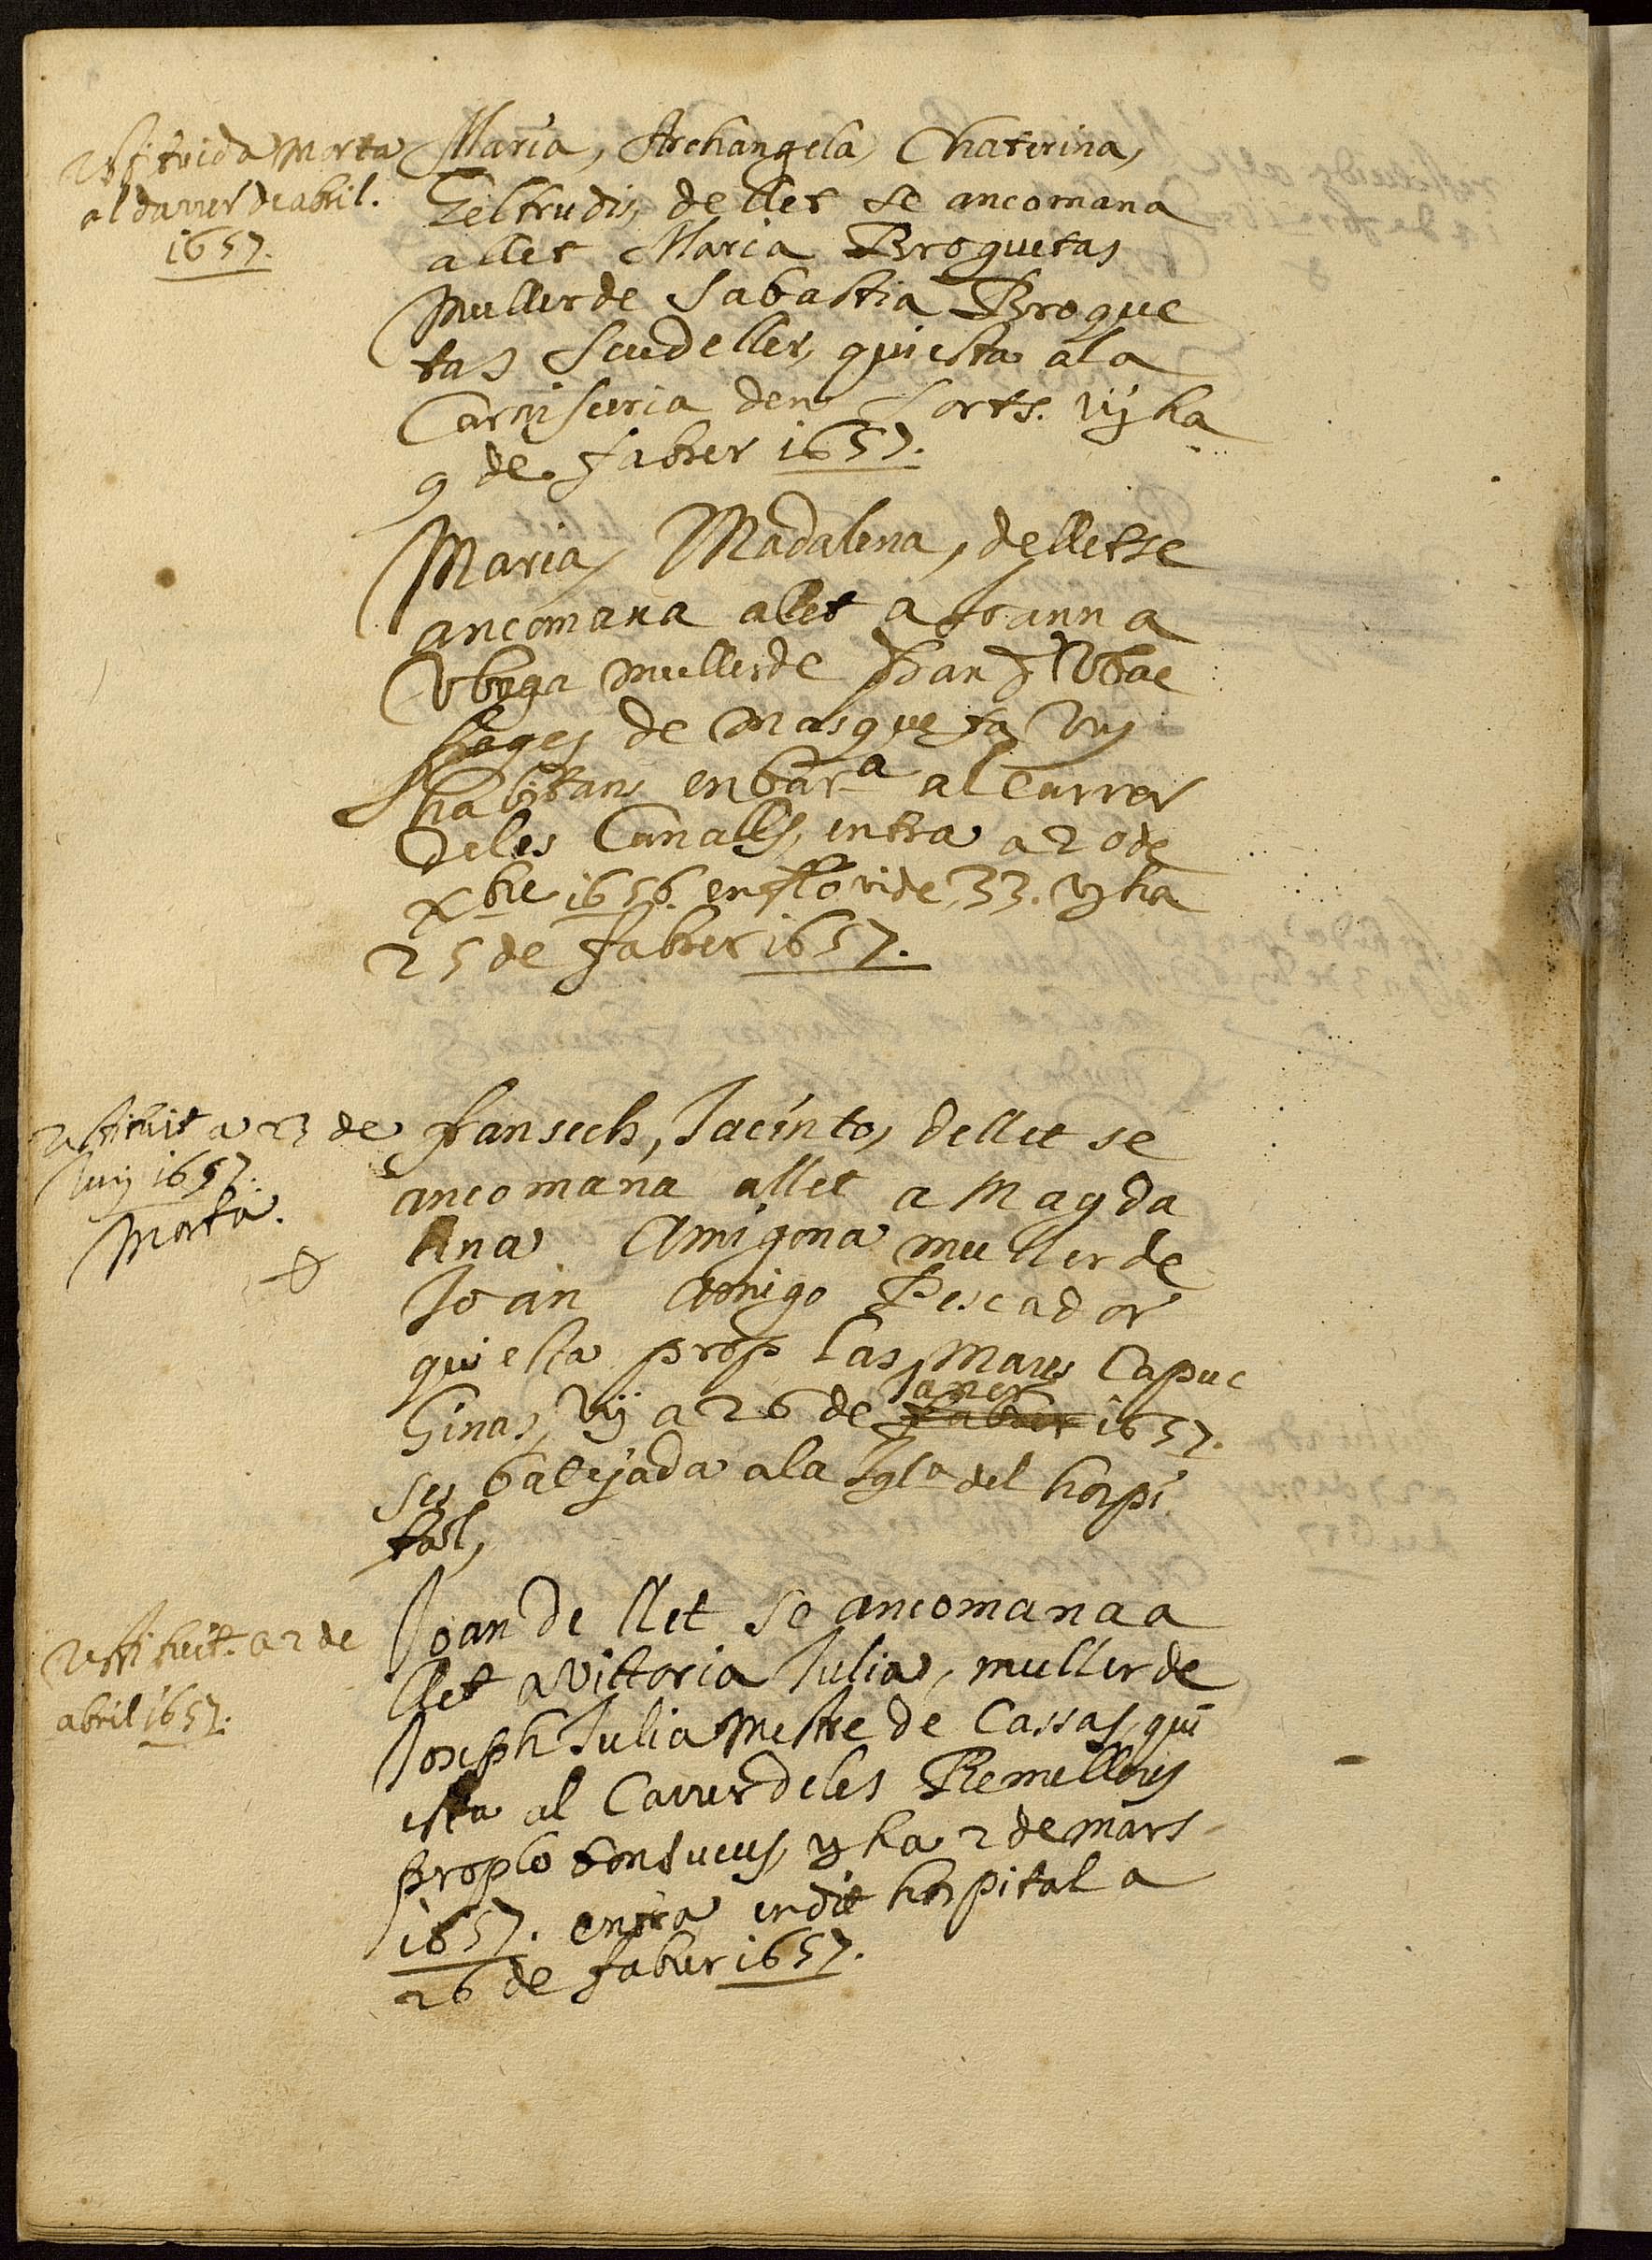 restituida morta
al darrer de abril.
1657.
Maria, Archangela, Chaterina,
Geltrudis, de llet se ancomana
a llet Maria Broquetas
muller de Sabastia Broque
tas Scudeller, qui esta a la
Carniseria den Sorts. vÿ ha
9 de fabrer 1657.
Maria, Madalena, de llet se
ancomana a llet a Joanna
muller de Joan
de Masquefa vuy
habitans en Bar.a al Carrer
de les Canalls, entra a 20 de
Xbre 1656. en llo vide 33. vy ha
25 de fabrer 1657.
restituit a 23 de
Juny 1657.
Morta.
fansech, Jacinto, de llet se
ancomana a llet a Magda
lena Amigona muller de
Joan Amigo Pescador
qui esta prop las Mares Capuc
hinas, vÿ a 26 de fabrer Janer 1657.
ses batejada a la Igla del hospi
tal,
restituit. a 2 de
abril 1657.
Joan de llet se ancomana a
llet a Vittoria Julia, muller de
Joseph Julia Mestre de Cassas, qui
esta al Carrer de les Remelleres
prop lo bonsucces, vy ha 2 de mars
1657. entra en dit hospital a
26 de fabrer 1657.